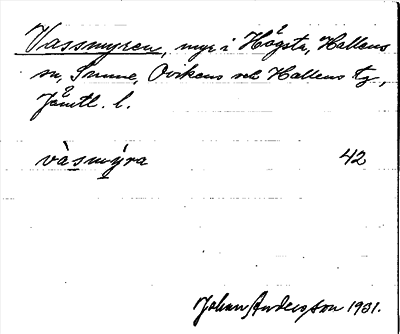 Vassmyren, myr i Högsta, Hallens
sn, Sunne, Ovikens och Hallens tg,
Jämtl. l.
vàsmýra 42
Johan Anderson 1931.